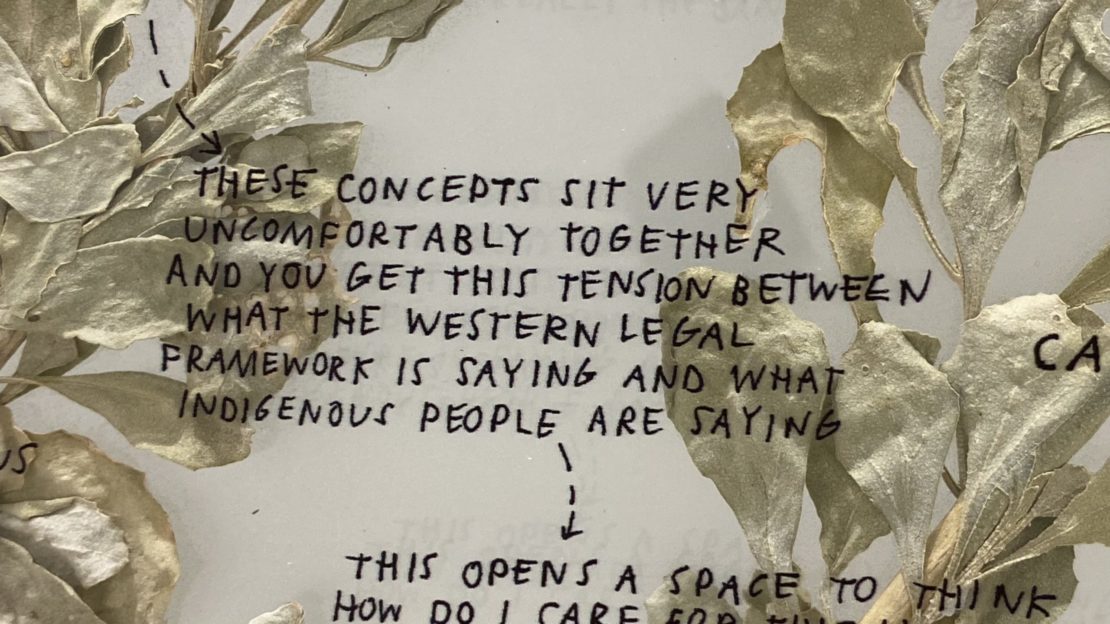 THESE CONCEPTS SIT VERY
UNCOMFORTABLY TOGETHER
AND YOU GET THIS TENSION BETWEEN
WHAT THE WESTERN LEGAL
FRAMEWORK IS SAYING AND WHAT
INDIGENOUS PEOPLE ARE SAYING
CA
US
THIS OPENS A SPACE TO THINK
HOW DO I CARE FOR